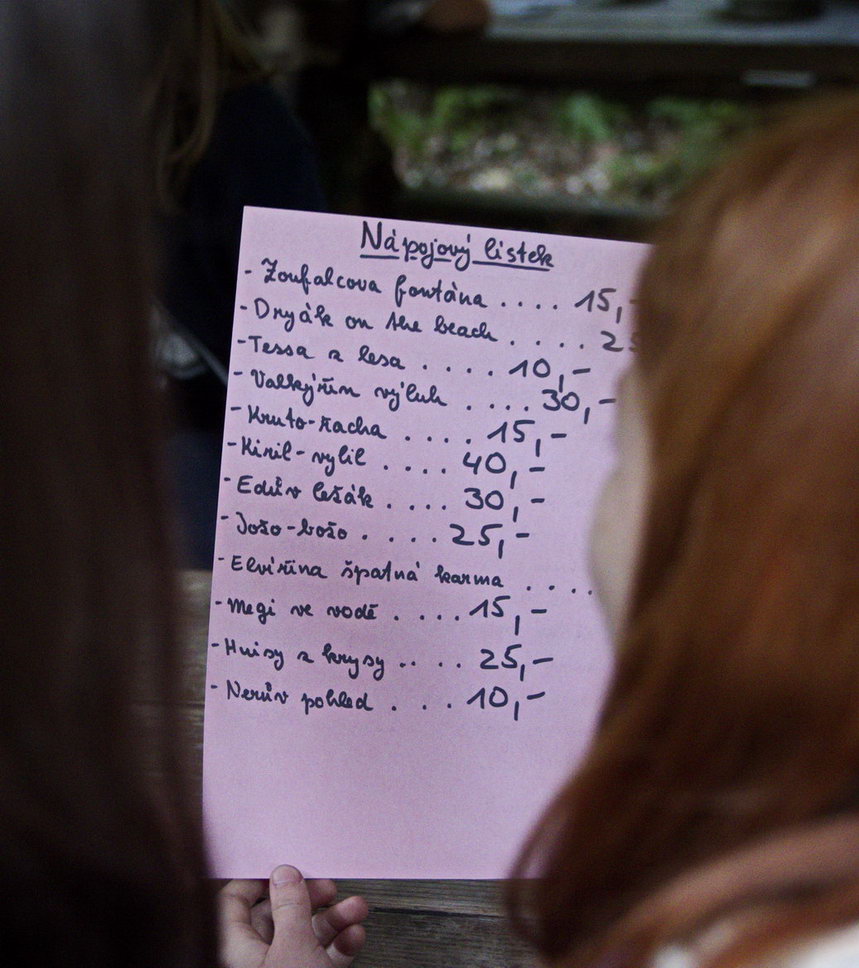 Nápojový lístek
- Zoufalcova fontána .... 15,-
- Dryák on the beach .... 25
- Tessa z lesa .... 10,-
- Valkýřin výluh .... 30,-
- Kruto-řacha .... 15,-
- Kiril-vylil .... 40,-
- Edův ležák .... 30,-
- Jožo-božo .... 25,-
- Elvířina špatná karma ....
- Megi ve vodě .... 15,-
- Hnisy z krysy .... 25,-
- Nerův pohled ... 10,-